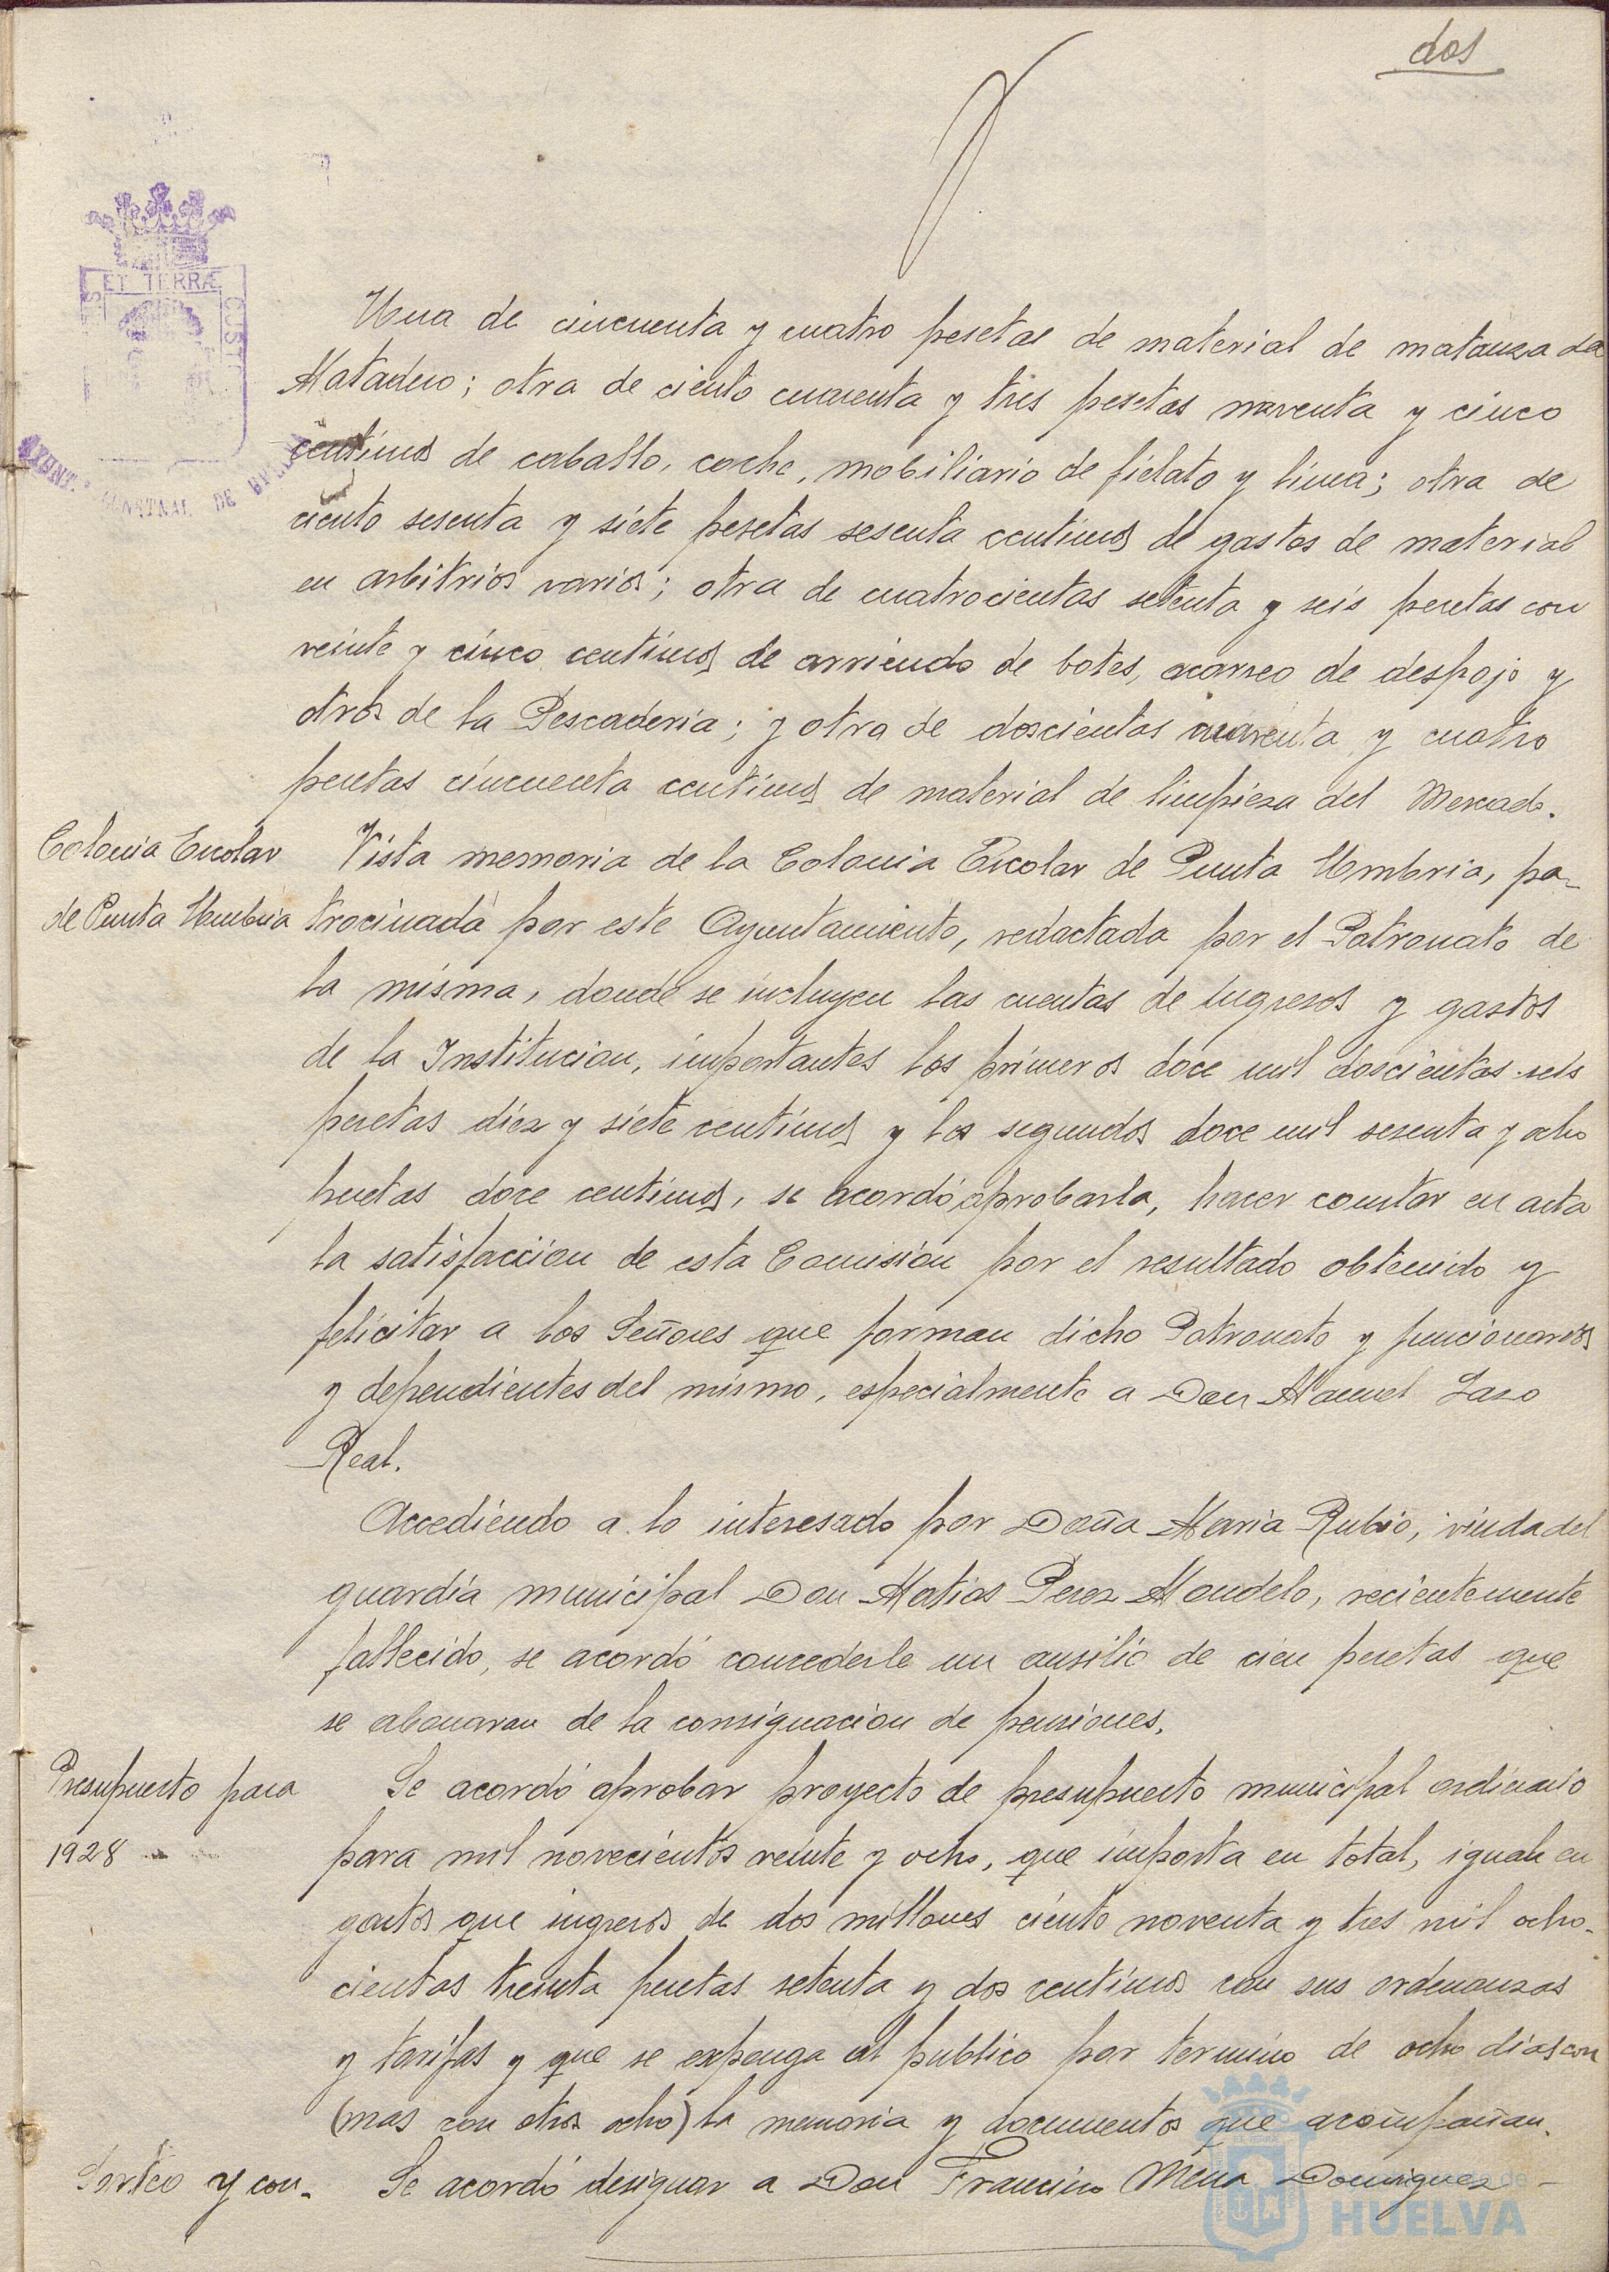 dos
ET TERRÆ
CUST
Una de cincuenta y cuatro pesetas de material de matanza del
Matadero; otra de ciento cuarenta y tres pesetas noventa y cinco
centimos de caballo, coche, mobiliario de fielato y linea; otra de
ciento sesenta y siete pesetas sesenta centimos de gastos de material
en arbitrios varios; otra de cuatrocientas setenta y seis pesetas con
veinte y cinco centimos de arriendo de botes, acarreo de despojo y
otros de la Pescaderia; y otra de doscientas cuarenta y cuatro
pesetas cincuenta centimos de material de limpieza del Mercado.
Colonia Escolar
de Punta Umbria
Vista memoria de la Colonia Escolar de Punta Umbria, pa-
trocinada por este Ayuntamiento, redactada por el Patronato de
la misma, donde se incluyen las cuentas de ingresos y gastos
de la Institucion, importantes los primeros doce mil doscientas seis
pesetas diez y siete centimos y los segundos doce mil sesenta y ocho
pesetas doce centimos, se acordó aprobarla, hacer constar en acta
la satisfaccion de esta Comision por el resultado obtenido y
felicitar a los Señores que forman dicho Patronato y funcionarios
y dependientes del mismo, especialmente a Don Manuel Lazo
Real.
Accediendo a lo interesado por Doña Maria Rubio, viuda del
guardia municipal Don Matias Perez Mondelo, recientemente
fallecido, se acordó concederle un ausilio de cien pesetas que
se abonaran de la consignacion de pensiones.
Presupuesto para
1928
Se acordó aprobar proyecto de presupuesto municipal ordinario
para mil novecientos veinte y ocho, que importa en total, igual en
gastos que ingresos de dos millones ciento noventa y tres mil ocho-
cientas treinta pesetas setenta y dos centimos con sus ordenanzas
y tarifas y que se exponga al publico por termino de ocho dias con
(mas con otros ocho) la memoria y documentos que acompañan.
Sorteo y con-
Se acordó designar a Don Francisco Mena Dominguez -
HUELVA